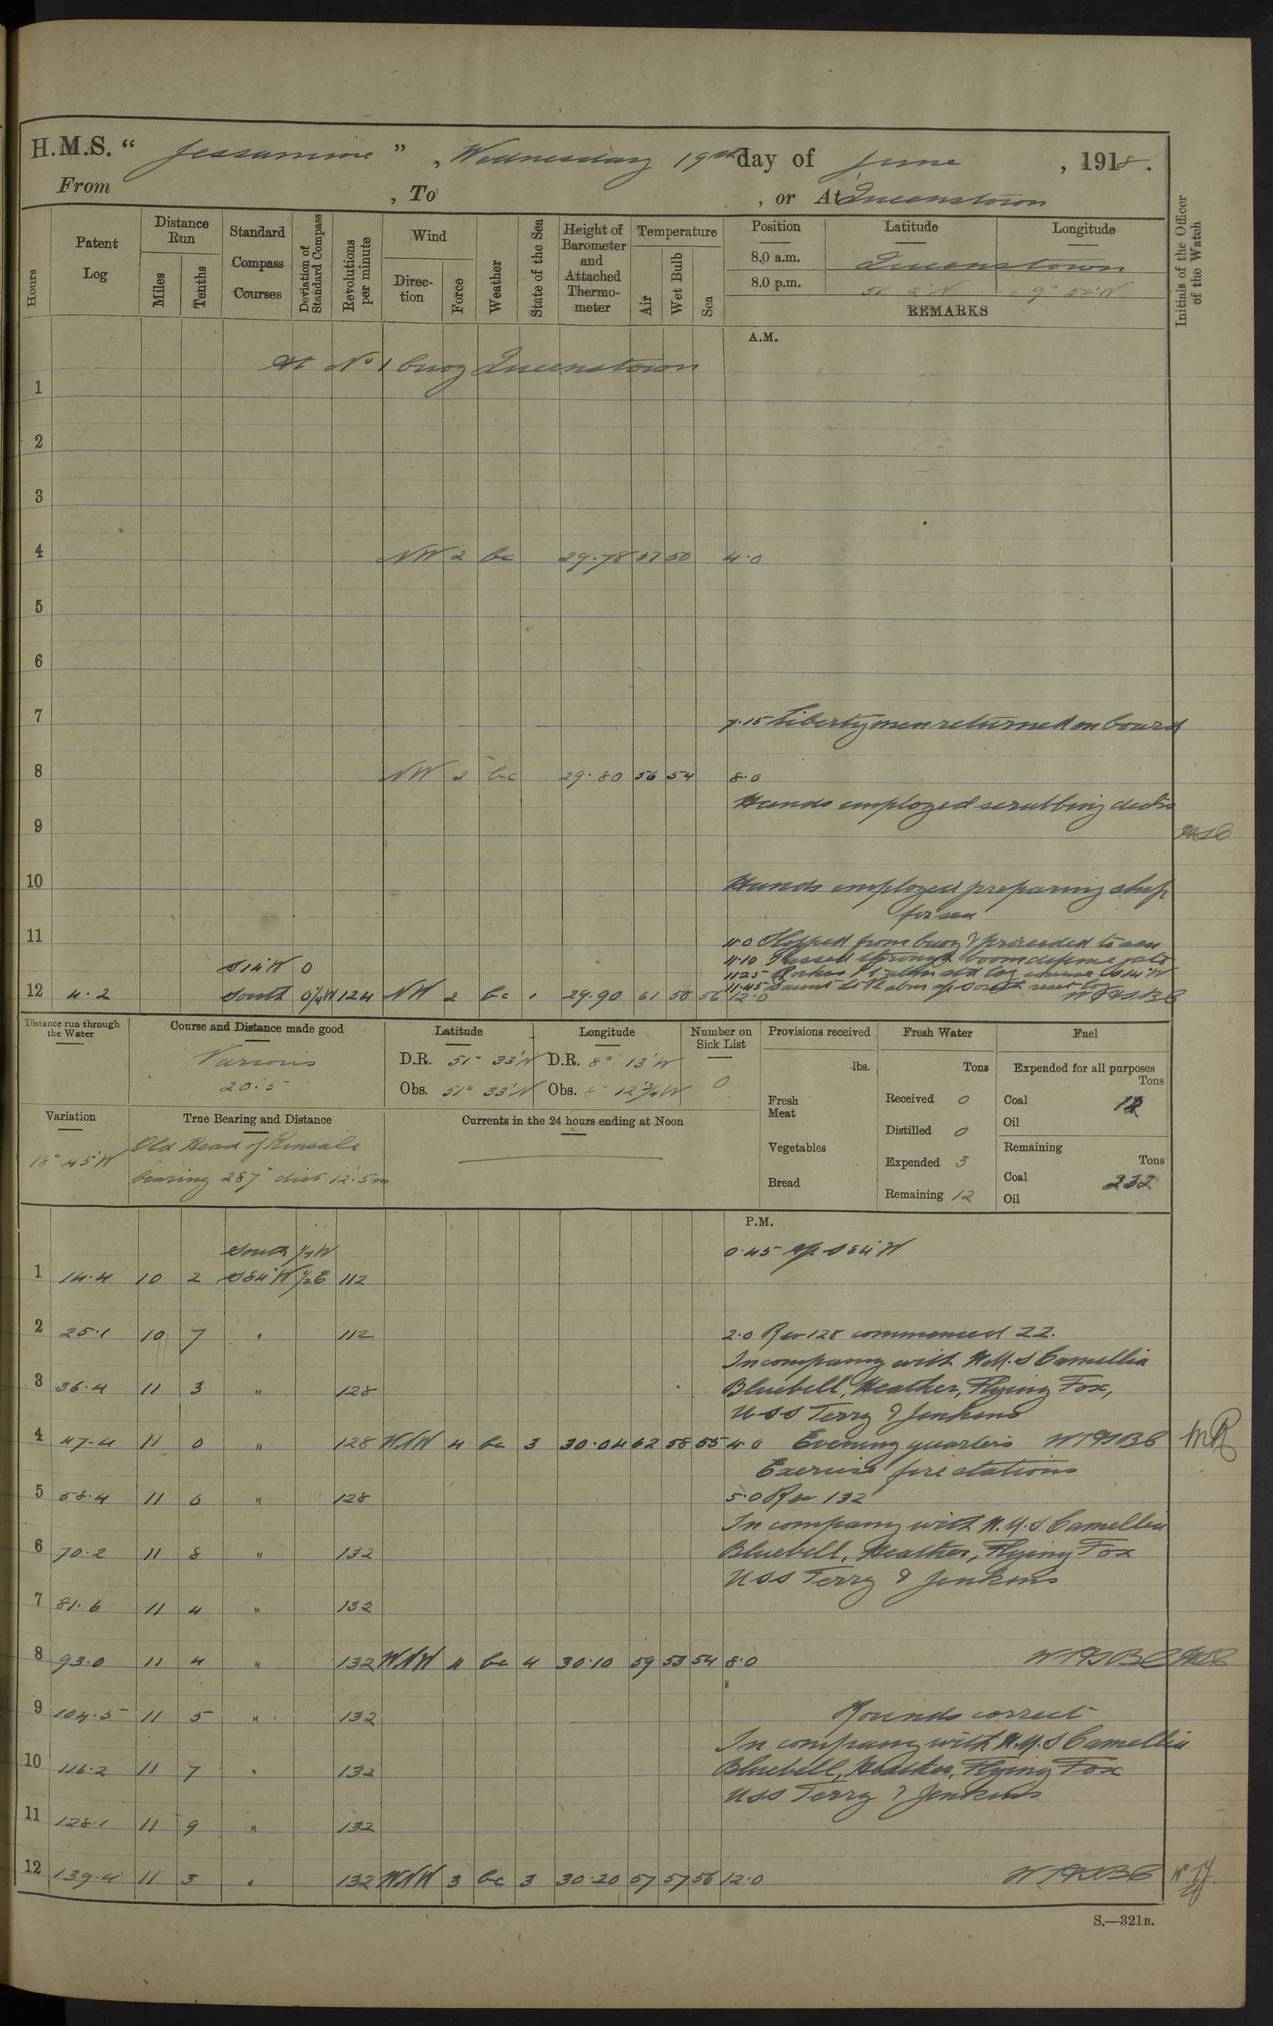 H.M.S. “ Jessamine ” , Wednesday 19th day of June , 1918.
From , To , or At Queenstown
Hours
Patent Log
Distance Run
Miles
Tenths
Standard Compass Courses
Deviation of Standard Compass
Revolutions per minute
Wind
Direction
Force
Weather
State of the Sea
Height of Barometer and Attached Thermometer
Temperature
Air
Wet Bulb
Sea
Position Latitude Longitude
8.0 a.m. Queenstown
8.0 p.m. 51° 2'N 9° 52'W
REMARKS
Initials of the Officer of the Watch
A.M.
At No 1 buoy Queenstown
1
2
3
4 NW 2 bc 29.78 57 50 4.0
5
6
7 7.15 Libertymen returned on board
8 NW 2 bc 29.80 56 54 8.0
Hands employed scrubbing decks
9
10 Hands employed preparing ship
for sea
11 11.0 Slipped from buoy & proceeded to sea
11.10 Passed through boom defence gate
S14°W 0 11.25 Roches Pt abm set log course S14°W
11.45 Daunt Lt V abm a/c South reset log
12 4.2 South 0¼W 124 NW 2 bc 1 29.90 61 58 56 12.0
Distance run through the Water
Course and Distance made good
Various
20.5
Latitude
D.R. 51° 33'N
Obs. 51° 33'N
Longitude
D.R. 8° 13'W
Obs. 8° 12¾'W
Number on Sick List
0
Provisions received
lbs.
Fresh Meat
Vegetables
Bread
Fresh Water
Tons
Received 0
Distilled 0
Expended 3
Remaining 12
Fuel
Expended for all purposes
Tons
Coal 12
Oil
Remaining
Tons
Coal 232
Oil
Variation
18° 45'W
True Bearing and Distance
Old Head of Kinsale
bearing 287° dist 12.5m
Currents in the 24 hours ending at Noon
P.M.
South ¼W 0.45 a/c S84°W
1 14.4 10 2 S84°W ½E 112
2 25.1 10 7 " 112 2.0 Rev 128 commenced ZZ.
In company with H.M.S Camellia
3 36.4 11 3 " 128 Bluebell, Heather, Flying Fox,
USS Terry & Jenkins
4 47.4 11 0 " 128 WNW 4 bc 3 30.04 62 58 55 4.0 Evening quarters
Exercise fire stations
5 58.4 11 0 " 128 5.0 Rev 132
In company with H.M.S Camellia
6 70.2 11 8 " 132 Bluebell, Heather, Flying Fox
USS Terry & Jenkins
7 81.6 11 4 " 132
8 93.0 11 4 " 132 WNW 4 bc 4 30.10 59 53 54 8.0
9 104.5 11 5 " 132 Rounds correct
In company with H.M.S Camellia
10 116.2 11 7 " 132 Bluebell, Heather, Flying Fox
USS Terry & Jenkins
11 128.1 11 9 " 132
12 139.4 11 3 " 132 WNW 3 bc 3 30.20 57 57 56 12.0
S.—321B.